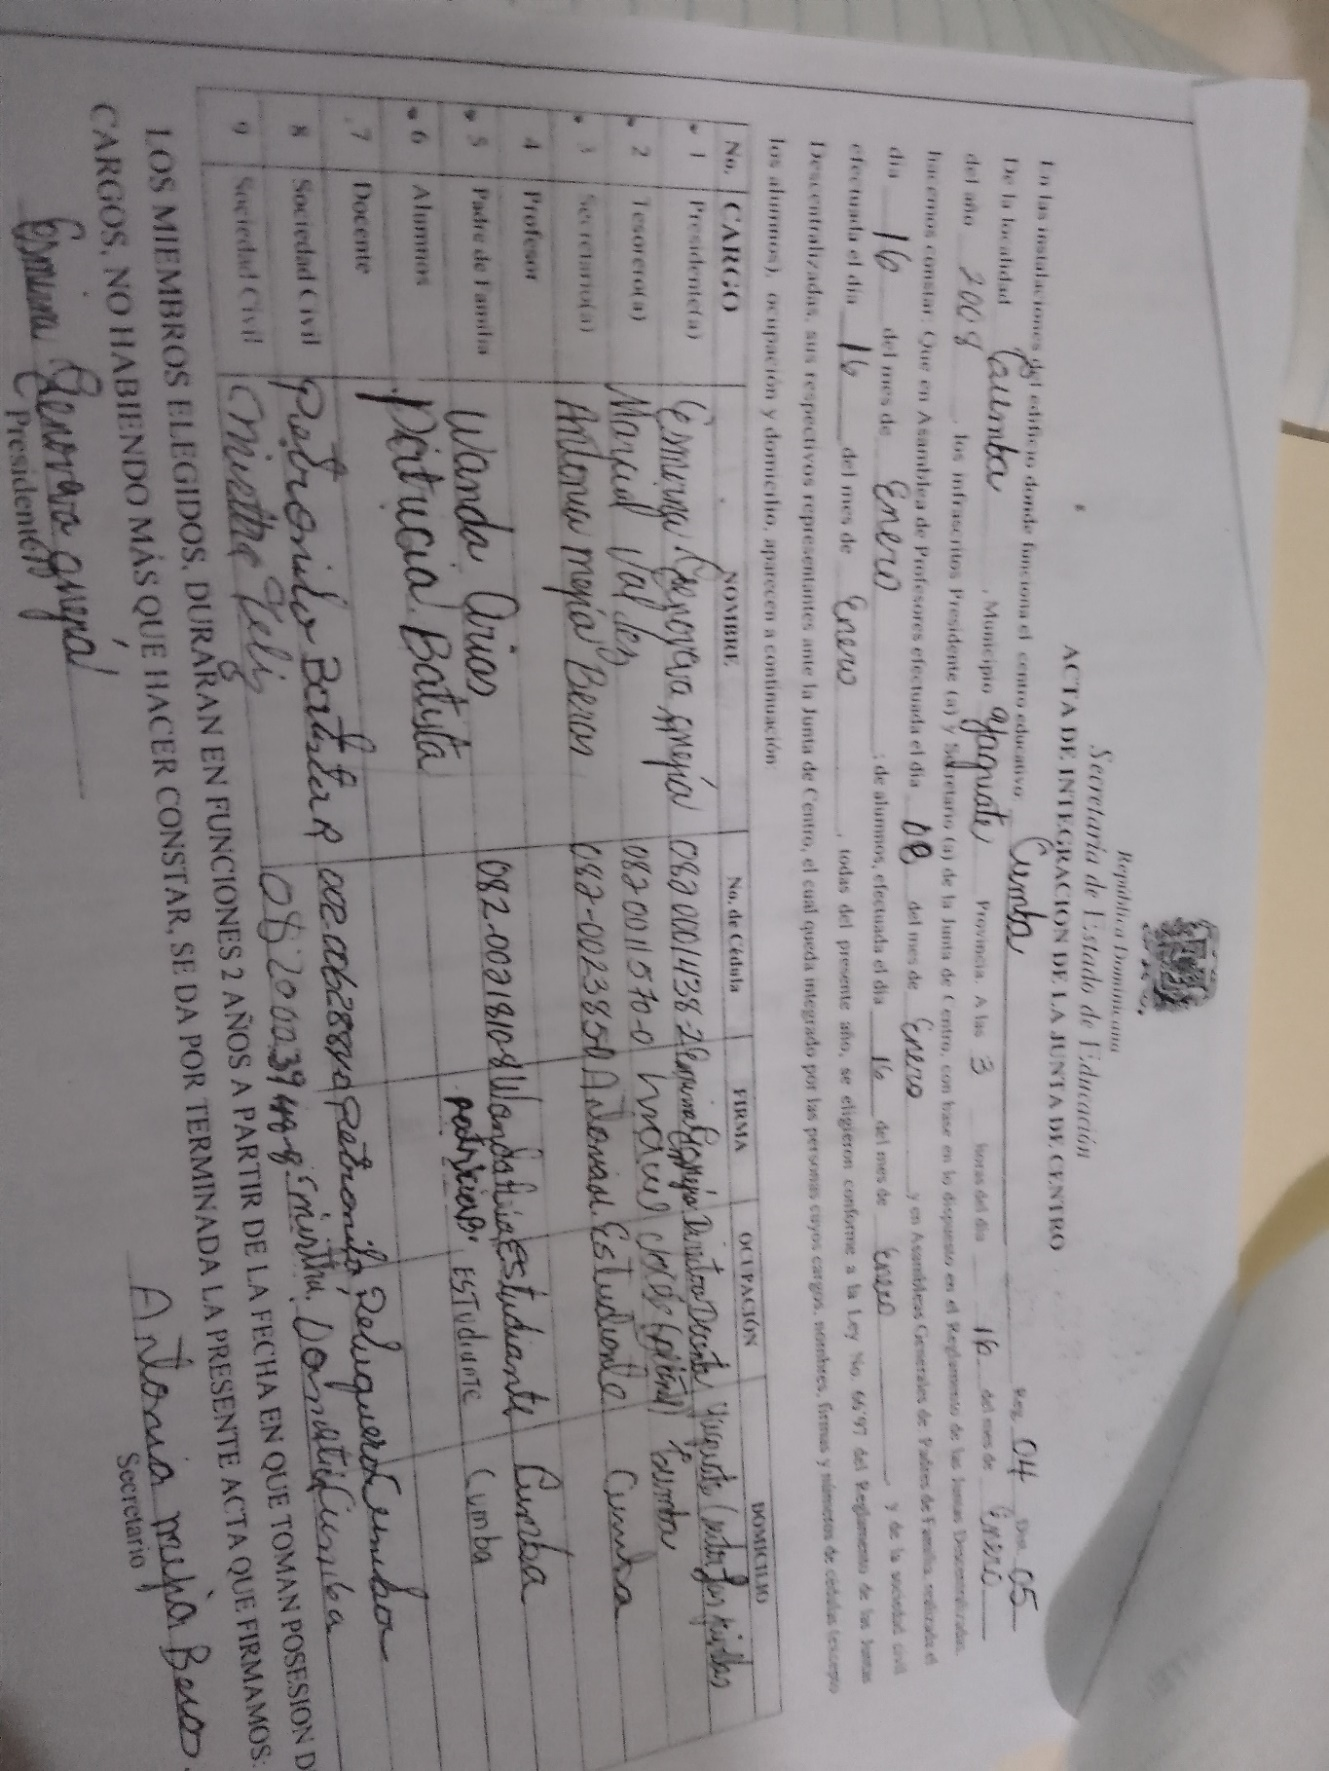 República Dominicana
Secretaría de Estado de Educación
ACTA DE INTEGRACION DE LA JUNTA DE CENTRO
Reg. 04 Dto. 05
En las instalaciones del edificio donde funciona el centro educativo, Cumba
De la localidad Cumba, Municipio Yaguate Provincia. A las 3 horas del día 16 del mes de Enero
del año 2008, los infrascritos Presidente (a) y Secretario (a) de la Junta de Centro, con base en lo dispuesto en el Reglamento de las Juntas Descentralizadas,
hacemos constar: Que en Asamblea de Profesores efectuada el día del mes de Enero y en Asambleas Generales de Padres de Familia, realizada el
día 16 del mes de Enero; de alumnos, efectuada el día 16 del mes de Enero, y de la sociedad civil
efectuada el día 16 del mes de Enero, todas del presente año, se eligieron conforme a la Ley No. 66'97 del Reglamento de las Juntas
Descentralizadas, sus respectivos representantes ante la Junta de Centro, el cual queda integrado por las personas cuyos cargos, nombres, firmas y números de cédulas (excepto
los alumnos), ocupación y domicilio, aparecen a continuación:
No. CARGO NOMBRE No. de Cédula FIRMA OCUPACIÓN DOMICILIO
1 Presidente(a) 082 0001438-2 Docente
2 Tesorero(a) 082 0011570-0 Cumba
3 Secretario(a) Antonia mejia Beras 082-0023850 Estudiante Cumba
4 Profesor
5 Padre de Familia Wanda Arias 082-0021810-8 Wanda Arias Estudiante Cumba
6 Alumnos Patricia Batista Patricia B. ESTudiante Cumba
7 Docente
8 Sociedad Civil Petronila Batista R Petronila Peluquera Cumba
9 Sociedad Civil mirtha Feliz mirtha Domestica Cumba
LOS MIEMBROS ELEGIDOS, DURARAN EN FUNCIONES 2 AÑOS A PARTIR DE LA FECHA EN QUE TOMAN POSESION D
CARGOS, NO HABIENDO MÁS QUE HACER CONSTAR, SE DA POR TERMINADA LA PRESENTE ACTA QUE FIRMAMOS:
Antonia mejia Beras
Presidente Secretario